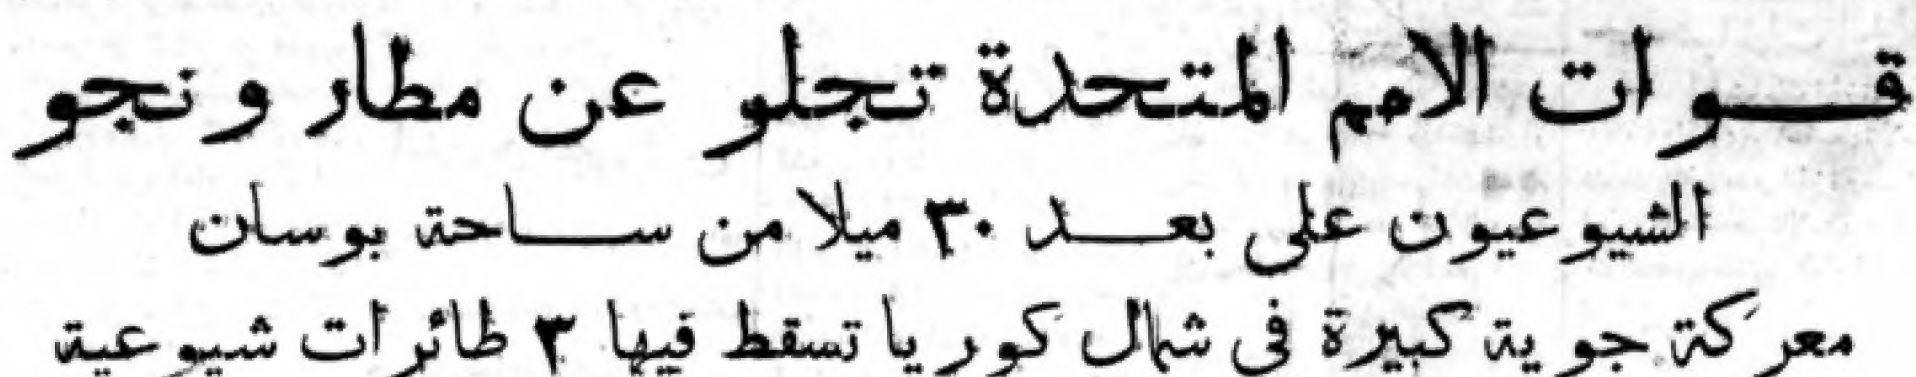 قوات الامم المتحدة تجلو عن مطار ونجو
الشيوعيون على بعد ٣٠ ميلا من ساحة بوسان
معركة جوية كبيرة فى شمال كوريا تسقط فيها ٣ طائرات شيوعية